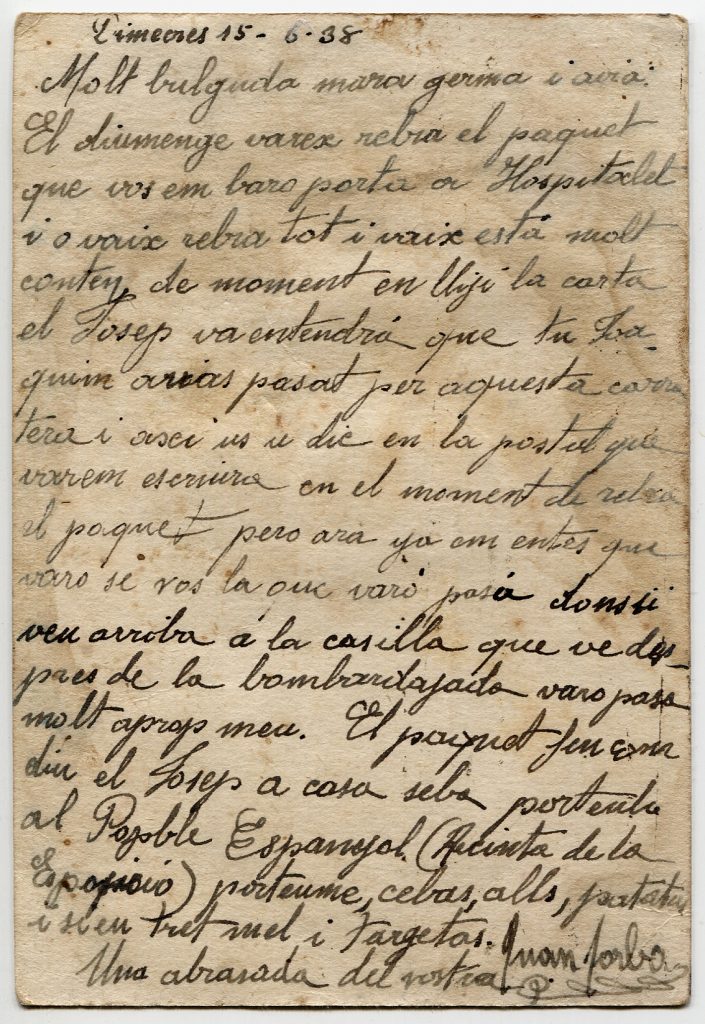 Dimecres 15 - 6 - 38
Molt bulguda mara germa i avia.
El diumenge varex rebra el paquet
que vos em baro porta a Hospitalet
i o vaix rebra tot i vaix está molt
conten, de moment en lliji la carta
el Josep va entendrá que tu Joa-
quim avias pasat per aquesta carra
tera i axci us u dic en la postal que
varem escriura en el moment de rebra
el paquet pero ara ya em entes que
varo se vos la que varó pasá dons si
veu arriba á la casilla que ve des-
pres de la bombardajada varo pasa
molt aprop meu. El paquet feu com
diu el Josep a casa seba porteulu
al Popble Espanyol (Recinta de la
Esposicio) porteume, cebas, alls, patatas
i si eu tret mel i targetas.
Una abrasada del vostra Juan Jorba